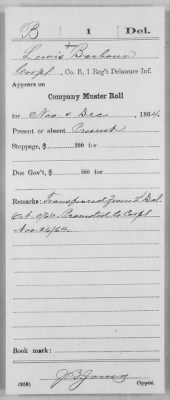 B 1 Del.
Lewis Barbour
Corpl., Co. B, 1 Reg't Delaware Inf.
Appears on
Company Muster Roll
for Nov & Dec, 1864.
Present or absent Present
Stoppage, $ 100 for
Due Gov't, $ 100 for
Remarks: Transferred from 2 Del.
Oct. 1/64. Promoted to Corpl
Nov. 26/64.
Book mark:
(858) J B Jones Copyist.